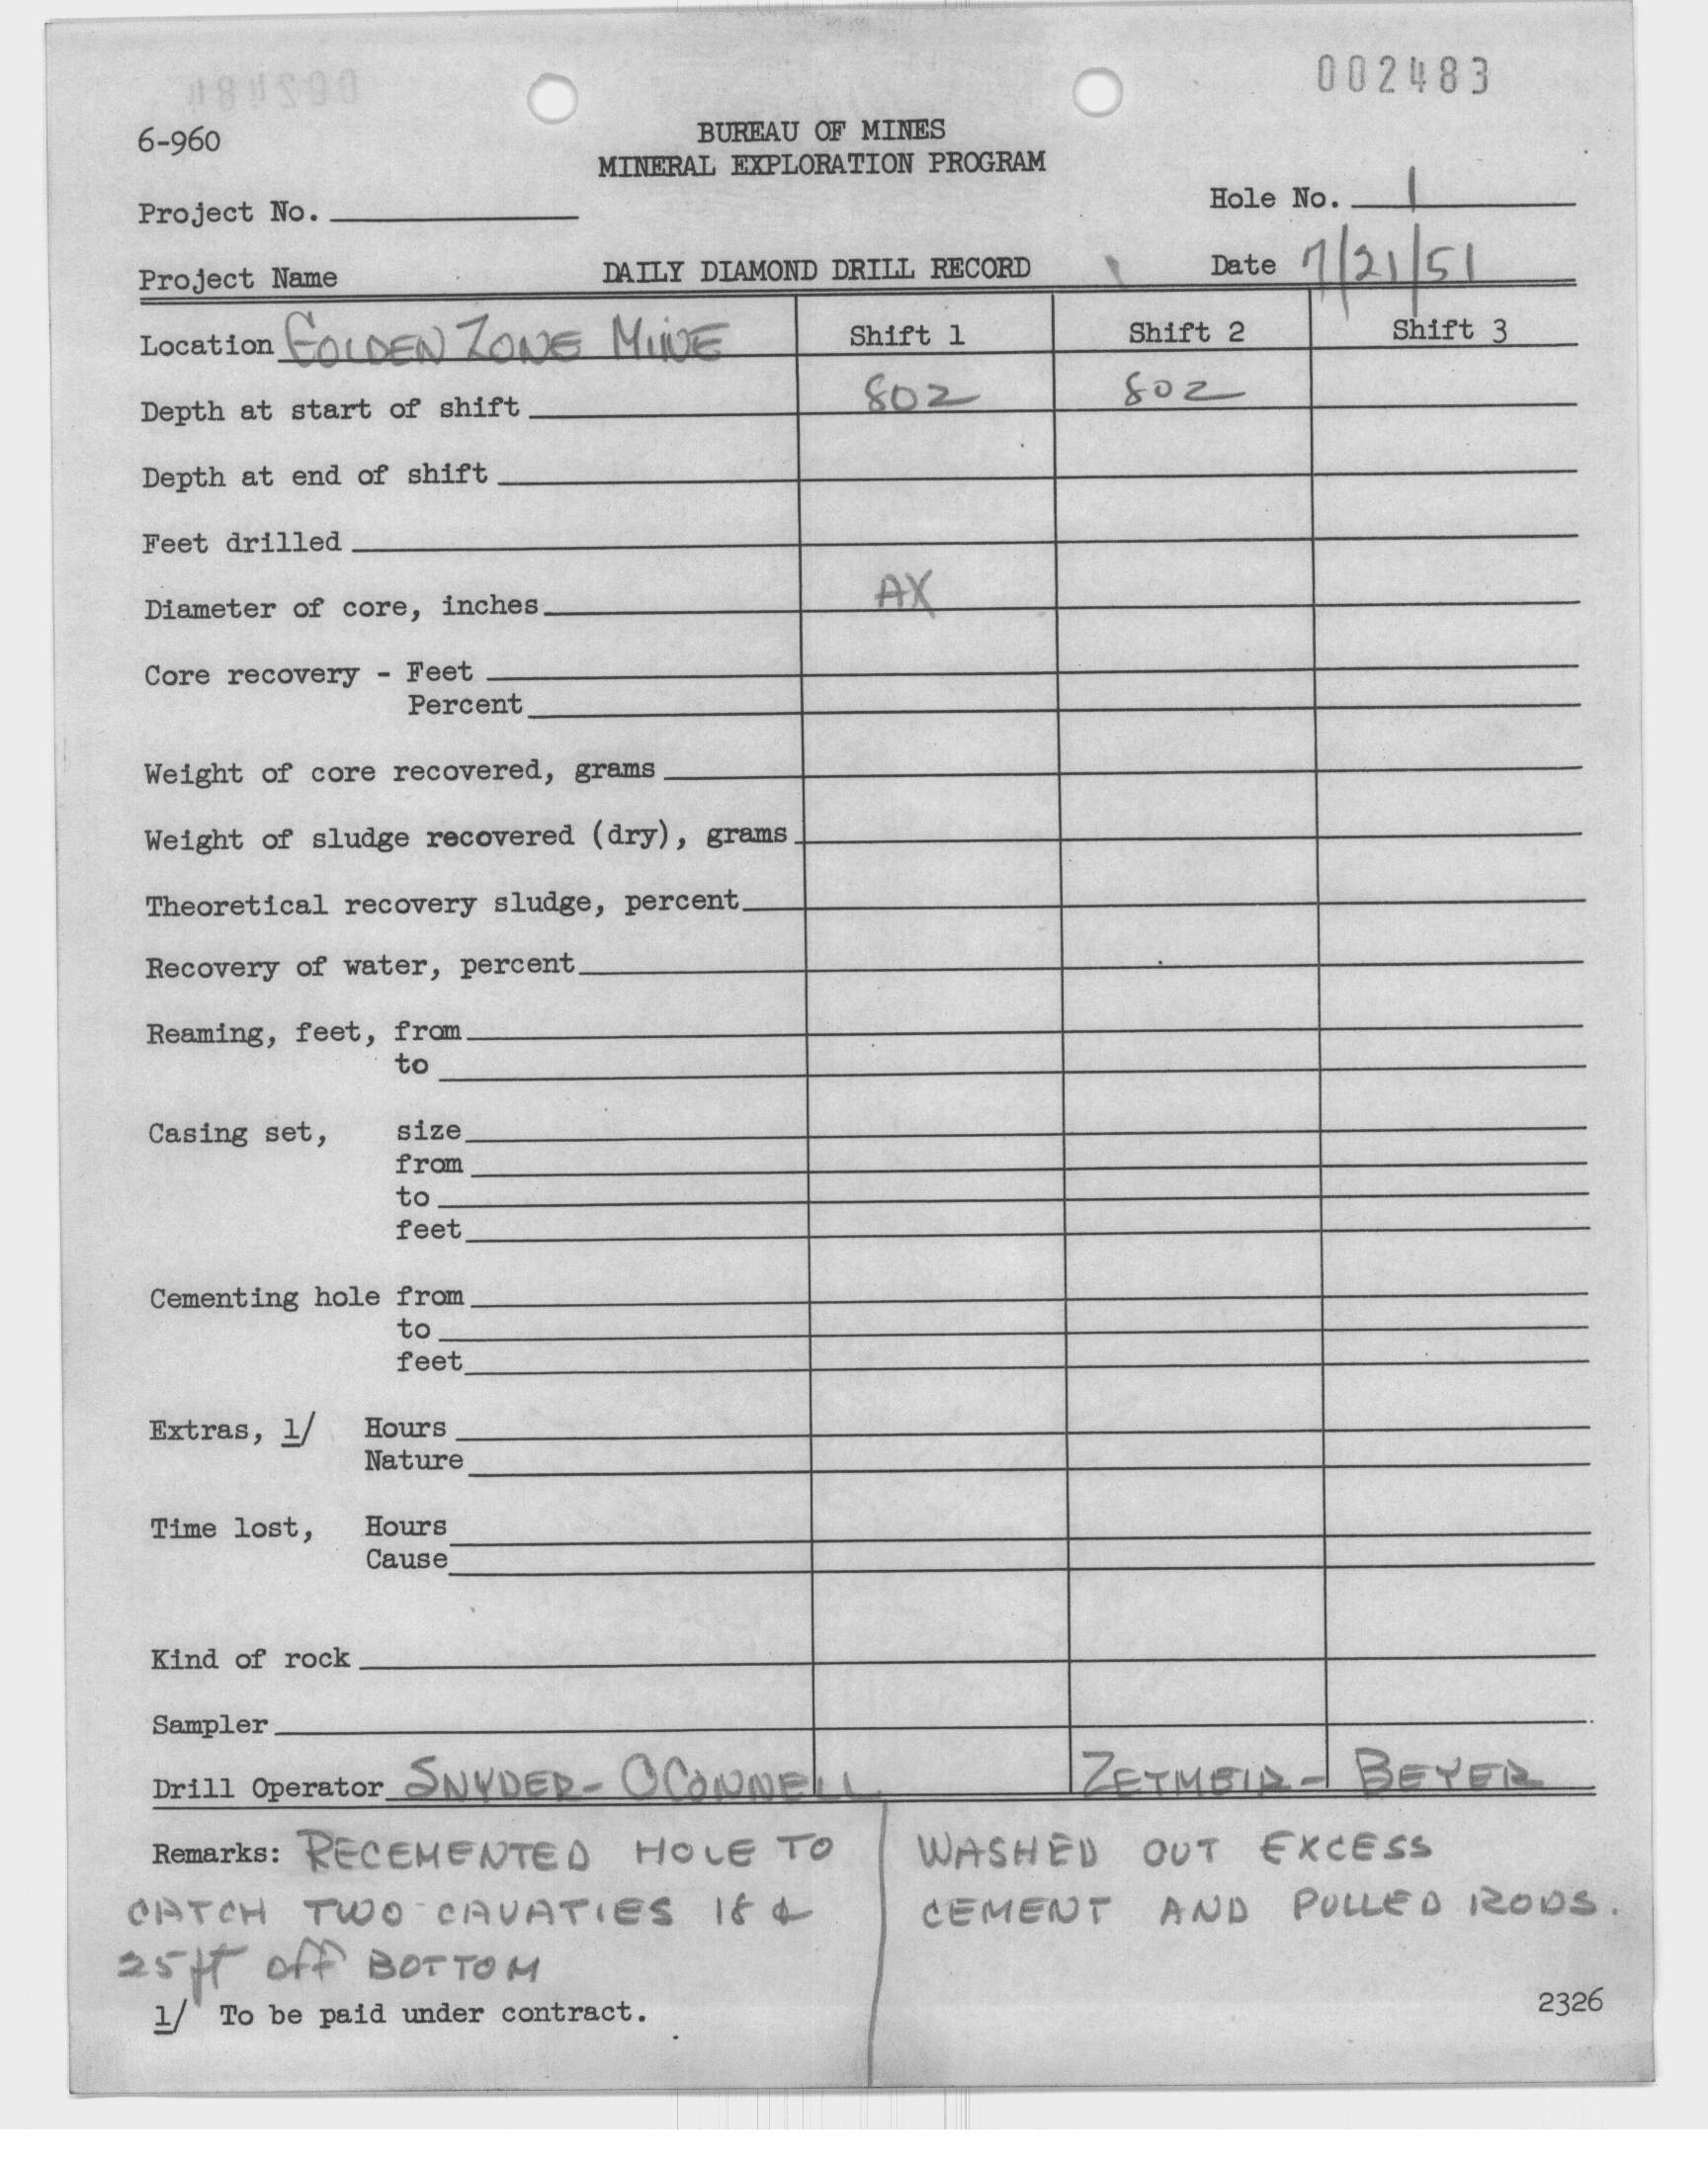 002483
6-960
BUREAU OF MINES
MINERAL EXPLORATION PROGRAM
Project No.
Hole No. 1
Project Name
DAILY DIAMOND DRILL RECORD
Date 7/21/51
Location GOLDEN ZONE MINE Shift 1 Shift 2 Shift 3
Depth at start of shift 802 802
Depth at end of shift
Feet drilled
Diameter of core, inches AX
Core recovery - Feet
Percent
Weight of core recovered, grams
Weight of sludge recovered (dry), grams
Theoretical recovery sludge, percent
Recovery of water, percent
Reaming, feet, from
to
Casing set, size
from
to
feet
Cementing hole from
to
feet
Extras, 1/ Hours
Nature
Time lost, Hours
Cause
Kind of rock
Sampler
Drill Operator SNYDER - OCONNELL ZETMEIR - BEYER
Remarks: RECEMENTED HOLE TO
CATCH TWO CAVATIES 18 &
25 ft off BOTTOM
WASHED OUT EXCESS
CEMENT AND PULLED RODS.
1/ To be paid under contract.
2326